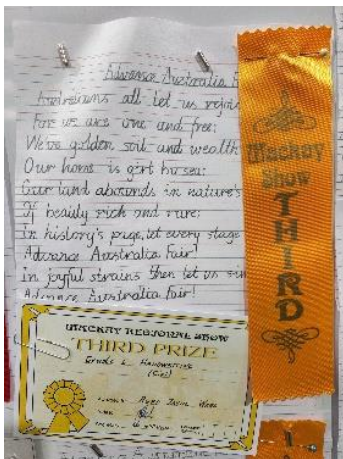 Advance Australia F
Australians all let us rejoi
For we are one and free;
We've golden soil and wealth
Our home is girt by sea;
Our land abounds in nature's
Of beauty rich and rare;
In history's page, let every stage
Advance Australia Fair!
In joyful strains then let us sin
Advance Australia Fair!
Mackay
Show
THIRD
MACKAY REGIONAL SHOW
THIRD PRIZE
Handwriting